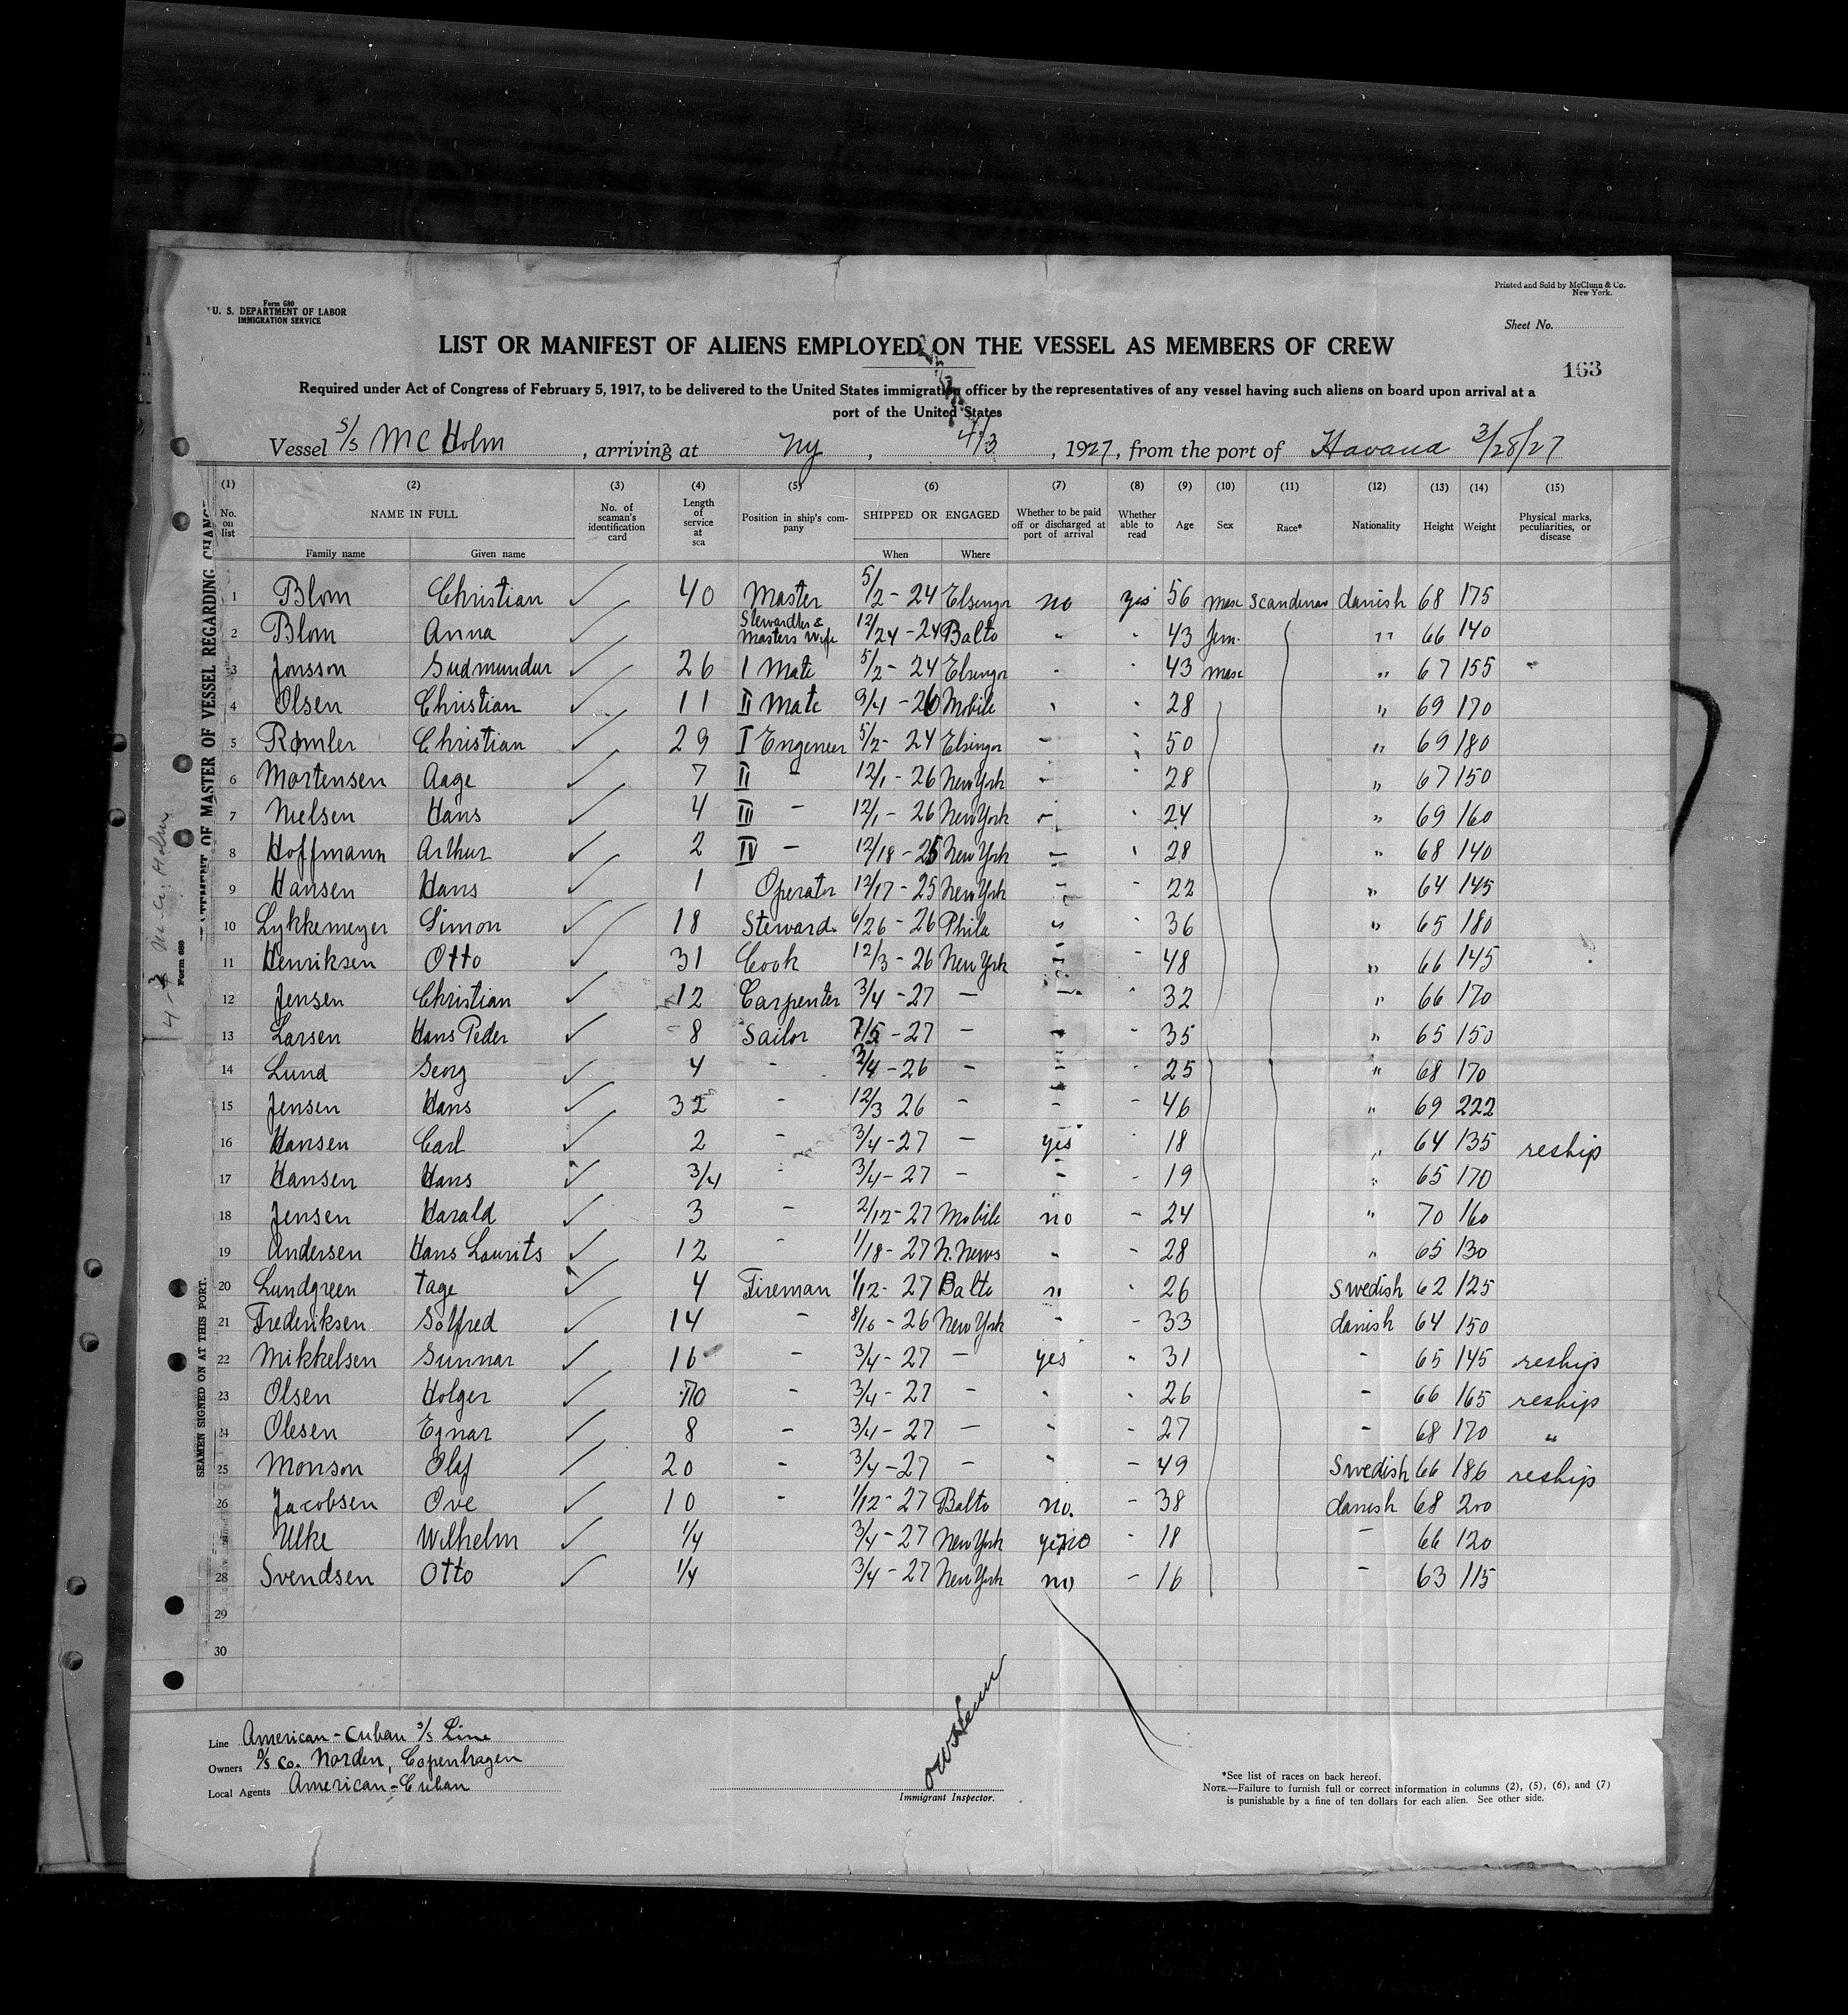 Form 680
U. S. DEPARTMENT OF LABOR
IMMIGRATION SERVICE
Printed and Sold by McClunn & Co.
New York.
Sheet No.
LIST OR MANIFEST OF ALIENS EMPLOYED ON THE VESSEL AS MEMBERS OF CREW
163
Required under Act of Congress of February 5, 1917, to be delivered to the United States immigration officer by the representatives of any vessel having such aliens on board upon arrival at a
port of the United States
Vessel S/S MC Holm, arriving at Ny, 4/3, 1927, from the port of Havana 3/28/27
(1) (2) (3) (4) (5) (6) (7) (8) (9) (10) (11) (12) (13) (14) (15)
No. on list NAME IN FULL No. of seaman's identification card Length of service at sea Position in ship's company SHIPPED OR ENGAGED Whether to be paid off or discharged at port of arrival Whether able to read Age Sex Race* Nationality Height Weight Physical marks, peculiarities, or disease
Family name Given name When Where
1 Blom Christian ✓ 40 Master 5/2 - 24 Elsengor no yes 56 masc Scandenav danish 68 175
2 Blom Anna ✓ Stewardess & Masters Wife 12/24 - 24 Balto " " 43 fem. " 66 140
3 Jonsson Gudmundur ✓ 26 I Mate 5/2 - 24 Elsengor - " 43 masc " 67 155
4 Olsen Christian ✓ 11 II Mate 9/4 - 26 Mobile " " 28 " 69 170
5 Rømler Christian ✓ 29 I Engeneer 5/2 - 24 Elsingor - " 50 " 69 180
6 Mortensen Aage ✓ 7 II - 12/1 - 26 New York - " 28 " 67 150
7 Nielsen Hans ✓ 4 III - 12/1 - 26 New York - " 24 " 69 160
8 Hoffmann Arthur ✓ 2 IV - 12/18 - 25 New York - " 28 " 68 140
9 Hansen Hans ✓ 1 Operator 12/17 - 25 New York - - 22 " 64 145
10 Lykkemeyer Simon ✓ 18 Steward 6/26 - 26 Phila " - 36 " 65 180
11 Henriksen Otto ✓ 31 Cook 12/3 - 26 New York - - 48 " 66 145
12 Jensen Christian ✓ 12 Carpenter 3/4 - 27 - - - 32 " 66 170
13 Larsen Hans Peder ✓ 8 Sailor 7/5 - 27 - - - 35 " 65 150
14 Lund Georg ✓ 4 - 3/4 - 26 - - - 25 " 68 170
15 Jensen Hans ✓ 32 - 12/3 26 - - - 46 " 69 222
16 Hansen Carl ✓ 2 - 3/4 - 27 - yes " 18 " 64 135 reship
17 Hansen Hans ✓ 3/4 3/4 - 27 - - - 19 " 65 170
18 Jensen Harald ✓ 3 - 2/12 - 27 Mobile no - 24 " 70 160
19 Andersen Hans Laurits ✓ 12 - 1/18 - 27 N. News " - 28 " 65 130
20 Lundgreen Tage ✓ 4 Fireman 1/12 - 27 Balto " " 26 Swedish 62 125
21 Frederiksen Solfred ✓ 14 - 8/16 - 26 New York - - 33 danish 64 150
22 Mikkelsen Gunnar ✓ 16 - 3/4 - 27 - yes " 31 - 65 145 reship
23 Olsen Holger ✓ 10 - 3/4 - 27 - " " 26 - 66 165 reship
24 Olesen Ejnar ✓ 8 - 3/4 - 27 - " - 27 - 68 170 "
25 Monson Olaf ✓ 20 - 3/4 - 27 - " - 49 Swedish 66 186 reship
26 Jacobsen Ove ✓ 10 - 1/12 - 27 Balto no. - 38 danish 68 200
Ulke Wilhelm ✓ 1/4 3/4 - 27 New York yes no - 18 - 66 120
28 Svendsen Otto ✓ 1/4 3/4 - 27 New York no - 16 - 63 115
29
30
Line American - Cuban S/S Line
Owners D/S Co. Norden, Copenhagen
Local Agents American - Cuban
Immigrant Inspector.
*See list of races on back hereof.
NOTE.—Failure to furnish full or correct information in columns (2), (5), (6), and (7)
is punishable by a fine of ten dollars for each alien. See other side.
STATEMENT OF MASTER OF VESSEL REGARDING CHANG
SEAMEN SIGNED ON AT THIS PORT.
Form 689
4-3 M.C. Holm